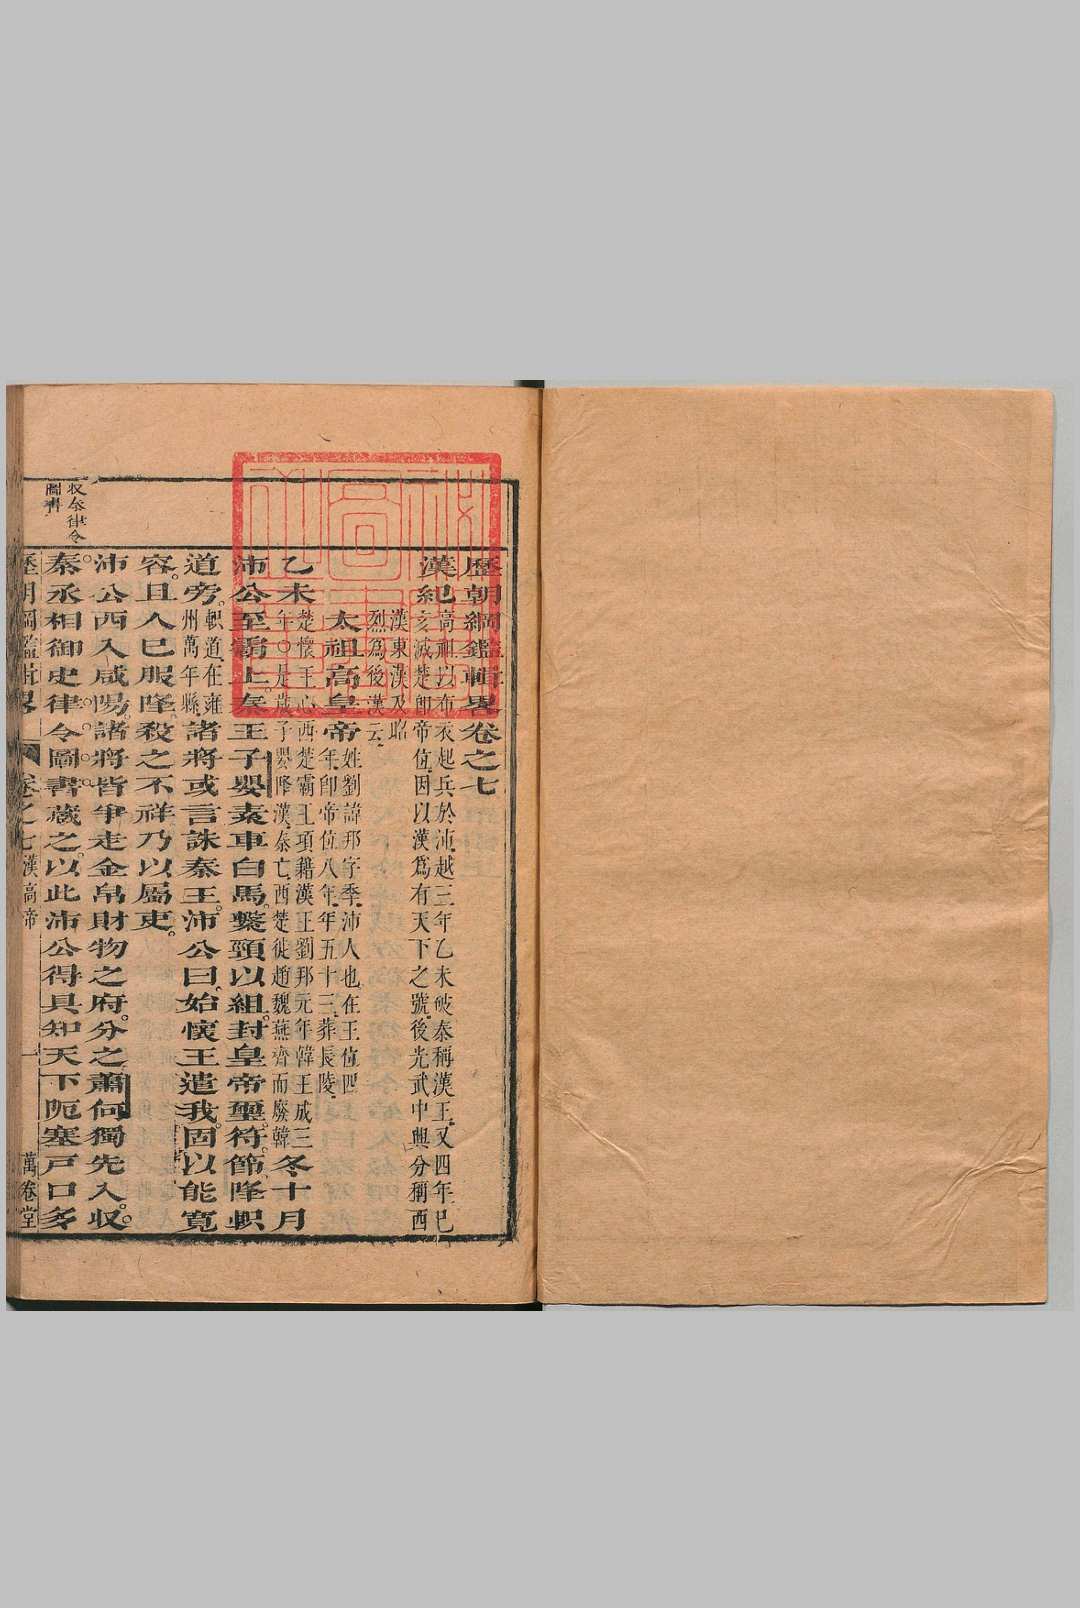 歷朝綱鑑輯畧卷之七
漢紀
高祖以布衣起兵於沛越三年乙未破秦稱漢王又四年己
亥滅楚卽帝位因以漢爲有天下之號後光武中興分稱西
漢東漢及昭
烈爲後漢云
太祖高皇帝
姓劉諱邦字季沛人也在王位四
年卽帝位八年年五十三葬長陵
乙未
楚懷王心西楚霸王項籍漢王劉邦元年韓王成三
年○是歲子嬰降漢秦亡西楚徙趙魏燕齊而廢韓
冬十月
沛公至霸上秦王子嬰素車白馬繫頸以組封皇帝璽符節降軹
道旁
軹道在雍
州萬年縣
諸將或言誅秦王沛公曰始懷王遣我固以能寬
容且人已服降殺之不祥乃以屬吏
沛公西入咸陽諸將皆爭走金帛財物之府分之蕭何獨先入収
秦丞相御史律令圖書藏之以此沛公得具知天下阨塞戸口多
収秦律令
圖書
歷朝綱鑑輯畧
卷之七
漢高帝
一
萬卷堂